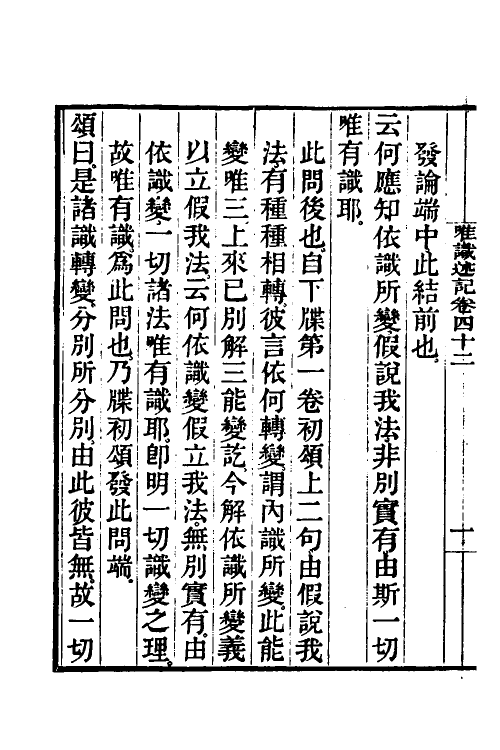 唯識述記卷四十二
十
發論端中此結前也
云何應知依識所變假說我法非別實有由斯一切
唯有識耶。
此問後也自下牒第一卷初頌上二句由假說我
法有種種相轉彼言依何轉變謂內識所變此能
變唯三上來已別解三能變訖今解依識所變義
以立假我法云何依識變假立我法無別實有由
依識變一切諸法唯有識耶卽明一切識變之理。
故唯有識為此問也乃牒初頌發此問端。
頌曰是諸識轉變分別所分別由此彼皆無故一切